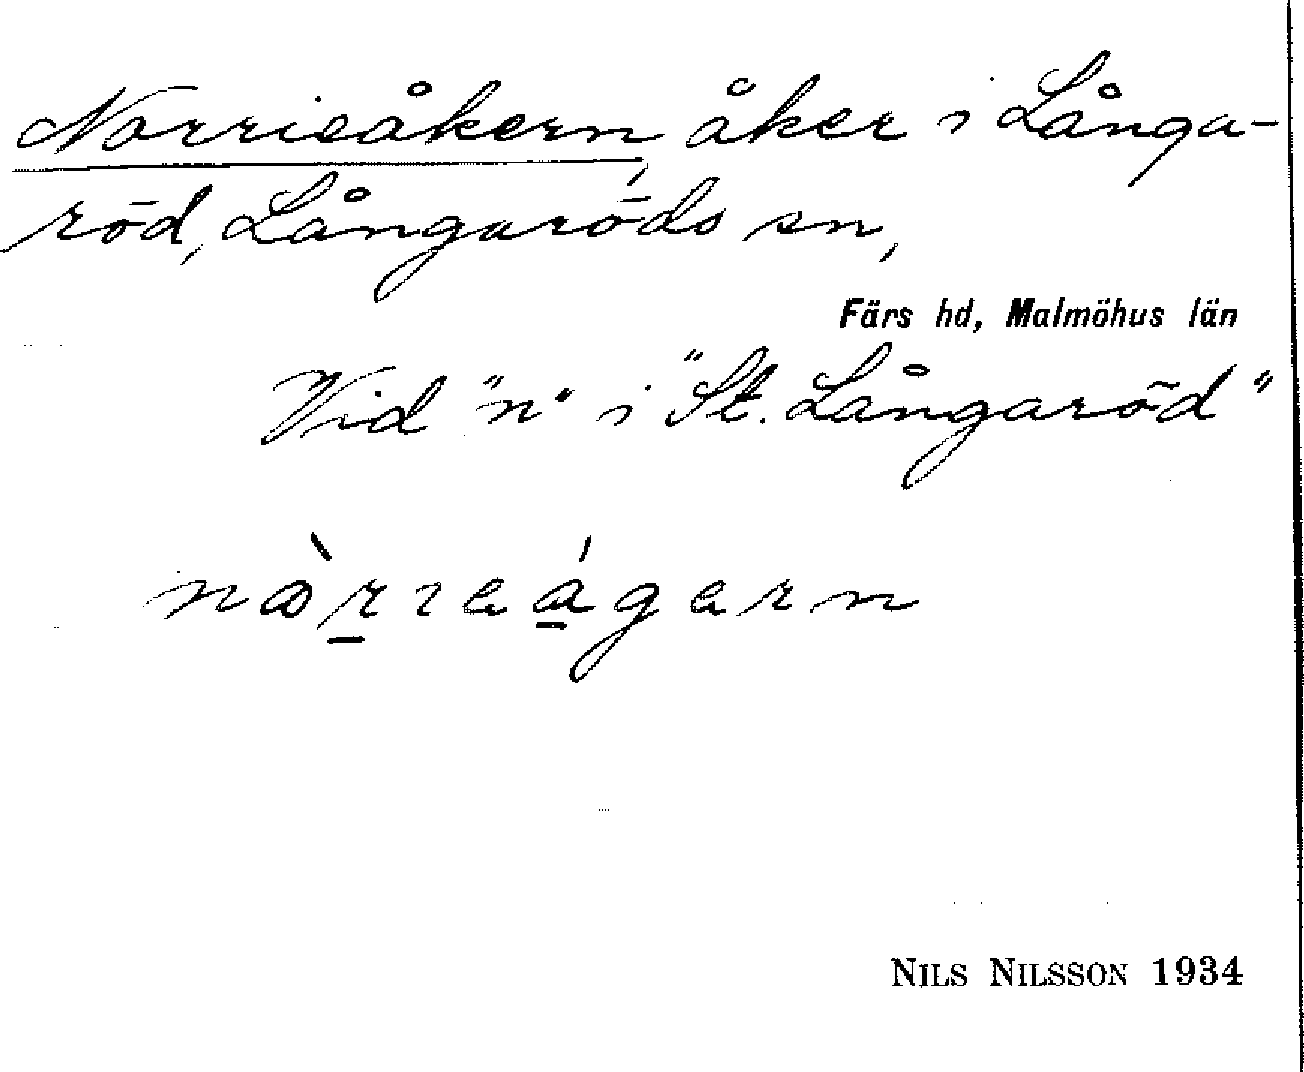 Norrieåkern, åker i Långa-
röd, Långaröds sn,
Färs hd, Malmöhus län
Vid "n" i "St. Långaröd"
NILS NILSSON 1934